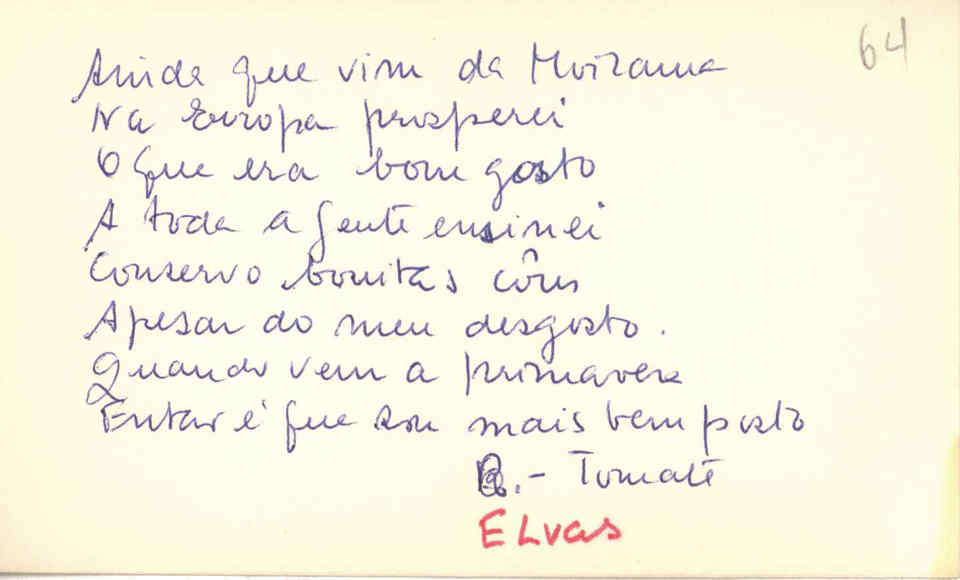 64
Ainda que vim da Moirama
Na Europa prosperei
O que era bom gosto
A toda a gente ensinei
Conservo bonitas côres
Apesar do meu desgosto.
Quando vem a primavera
Então é que sou mais bem posto
R.- Tomate
ELvas